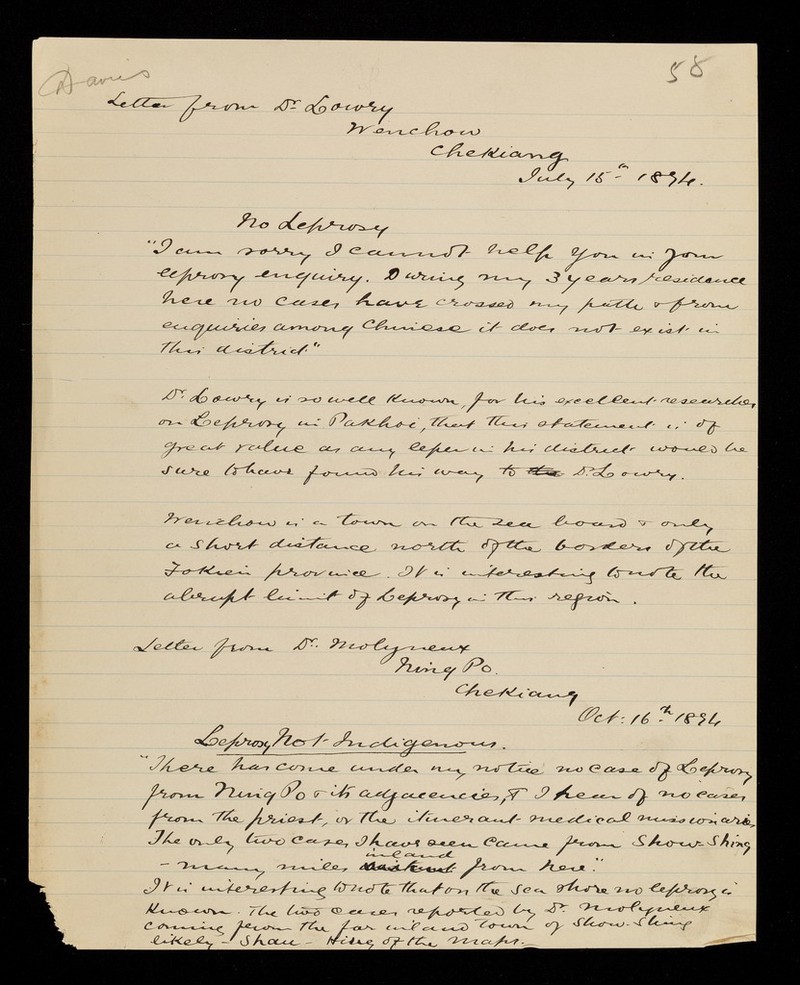 Davies
58
Letter from Dr Lowry
Wenchow
Chekiang
July 15th 1894.
No Leprosy
"I am sorry I cannot help you in your
leprosy enquiry. During my 3 years residence
here no cases have crossed my path & from
enquiries among Chinese it does not exist in
this district"
Dr Lowry is so well known, for his excellent researches
on Leprosy in Pakhoi, that this statement is of
great value as any leper in his district would be
sure to have found his way to the Dr. Lowry.
Wenchow is a town on the sea board & only
a short distance north of the borders of the
Fokien province. It is interesting to note the
abrupt limit of Leprosy in this region.
Letter from Dr. Molyneux
Ning Po.
Chekiang
Oct: 16th 1894
Leprosy Not Indigenous.
"There has come under my notice no case of Leprosy
from Ning Po & its adjacencies, & I hear of no cases
from the priest, or the itinerant medical missionaries
The only two cases I have seen came from Show Shing
inland
- many miles distant from here."
It is interesting to note that on the sea shore no leprosy is
known. The two cases reported by Dr. Molyneux
coming from the far inland town of Show-Shing
likely - Shau - Hing of the maps.